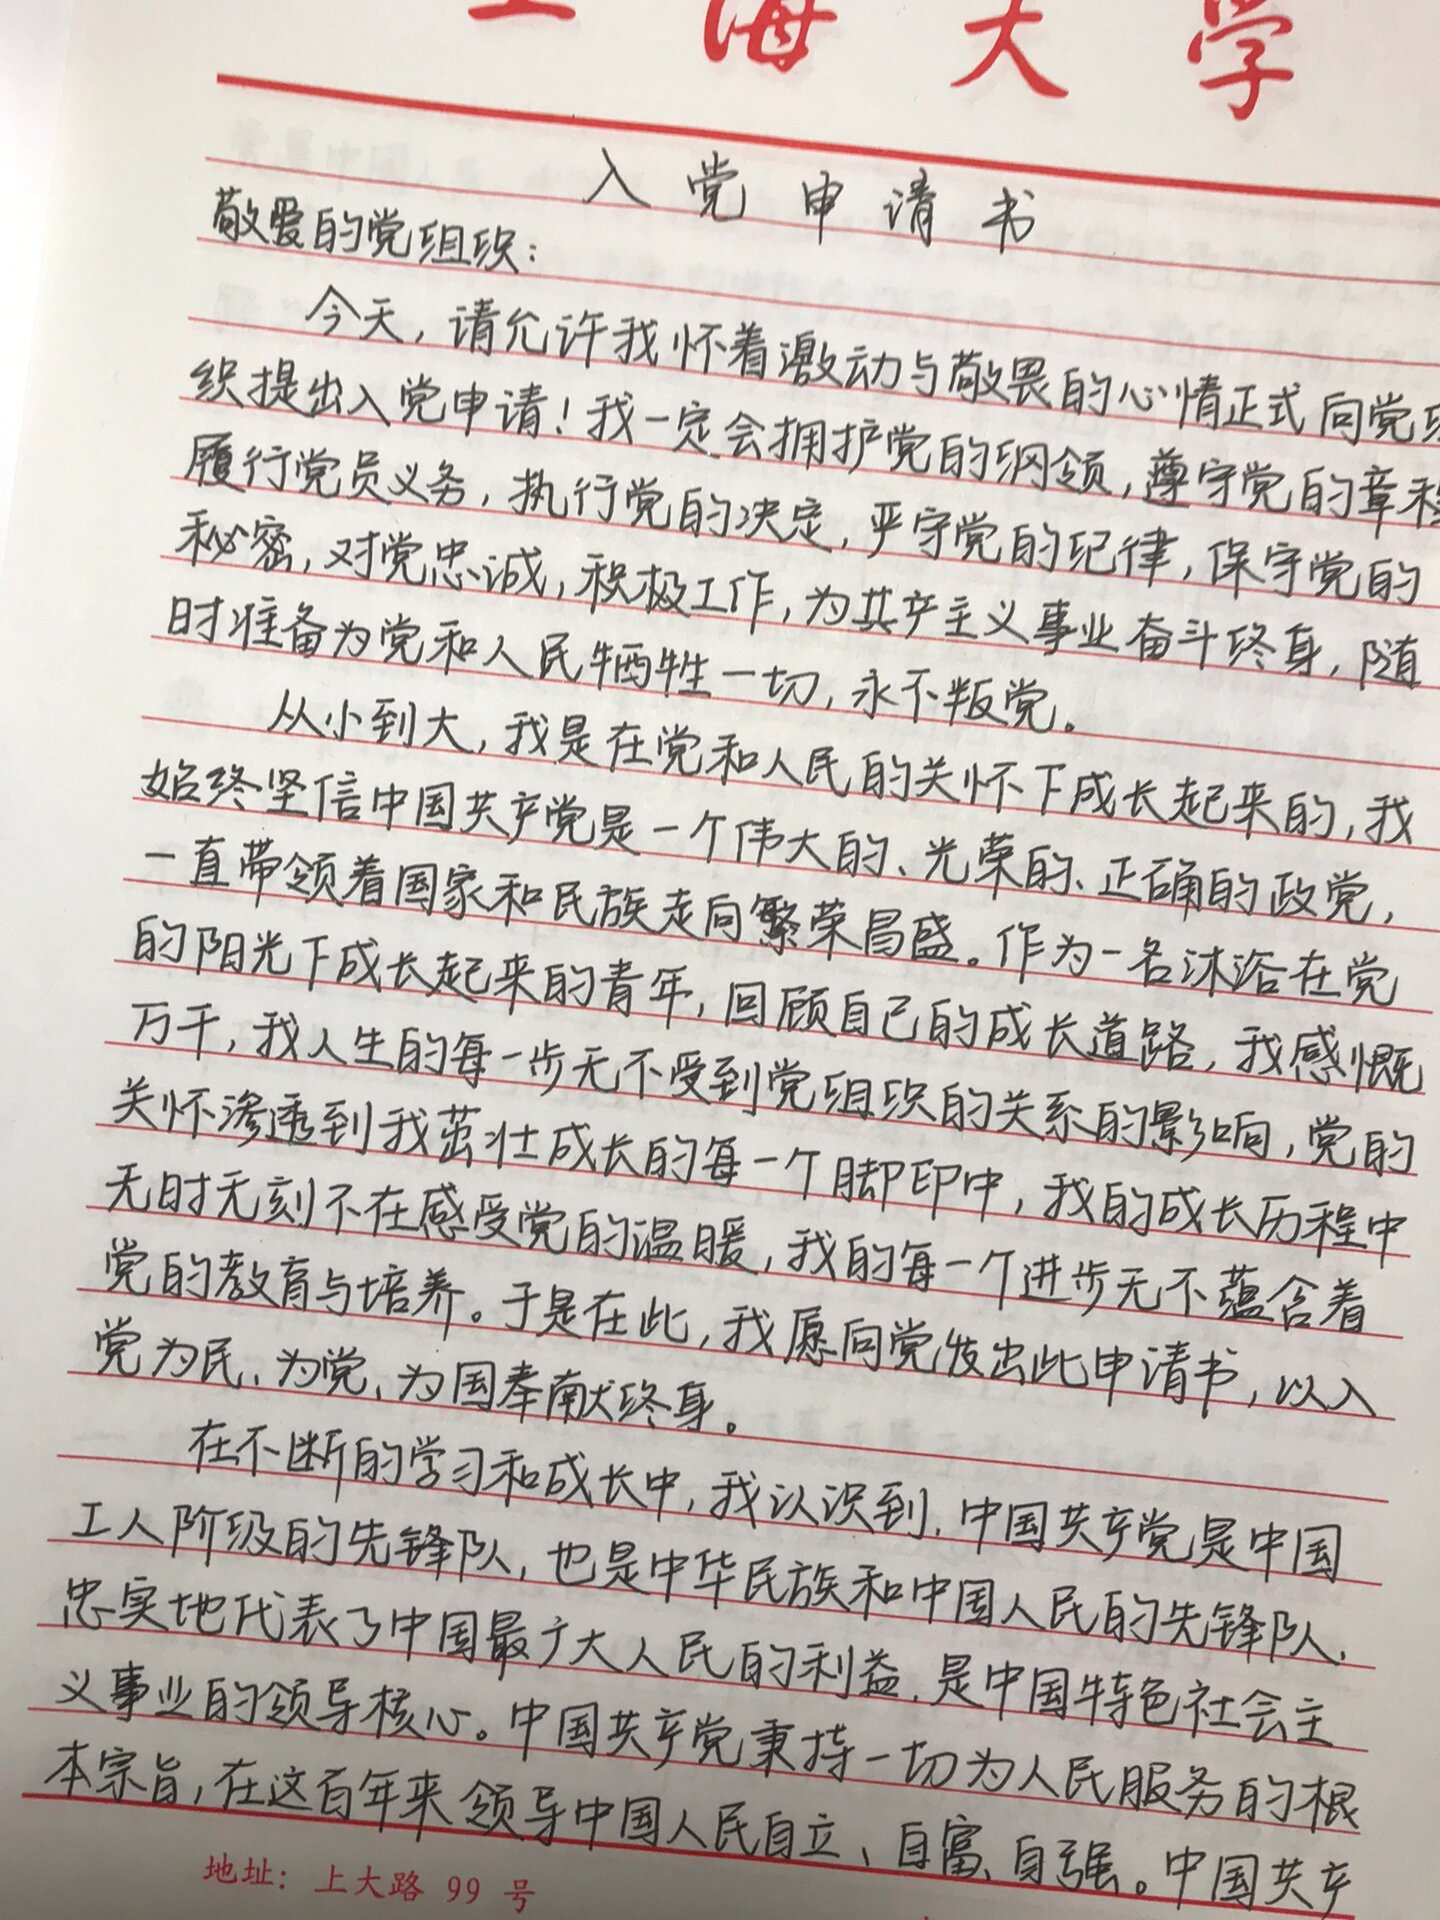 上海大学
入党申请书
敬爱的党组织：
今天，请允许我怀着激动与敬畏的心情正式向党组
织提出入党申请！我一定会拥护党的纲领，遵守党的章程
履行党员义务，执行党的决定，严守党的纪律，保守党的
秘密，对党忠诚，积极工作，为共产主义事业奋斗终身，随
时准备为党和人民牺牲一切，永不叛党。
从小到大，我是在党和人民的关怀下成长起来的，我
始终坚信中国共产党是一个伟大的、光荣的、正确的政党，
一直带领着国家和民族走向繁荣昌盛。作为一名沐浴在党
的阳光下成长起来的青年，回顾自己的成长道路，我感慨
万千，我人生的每一步无不受到党组织的关系的影响，党的
关怀渗透到我茁壮成长的每一个脚印中，我的成长历程中
无时无刻不在感受党的温暖，我的每一个进步无不蕴含着
党的教育与培养。于是在此，我愿向党发出此申请书，以入
党为民、为党、为国奉献终身。
在不断的学习和成长中，我认识到，中国共产党是中国
工人阶级的先锋队，也是中华民族和中国人民的先锋队，
忠实地代表了中国最广大人民的利益，是中国特色社会主
义事业的领导核心。中国共产党秉持一切为人民服务的根
本宗旨，在这百年来领导中国人民自立、自富、自强。中国共产
地址：上大路 99 号